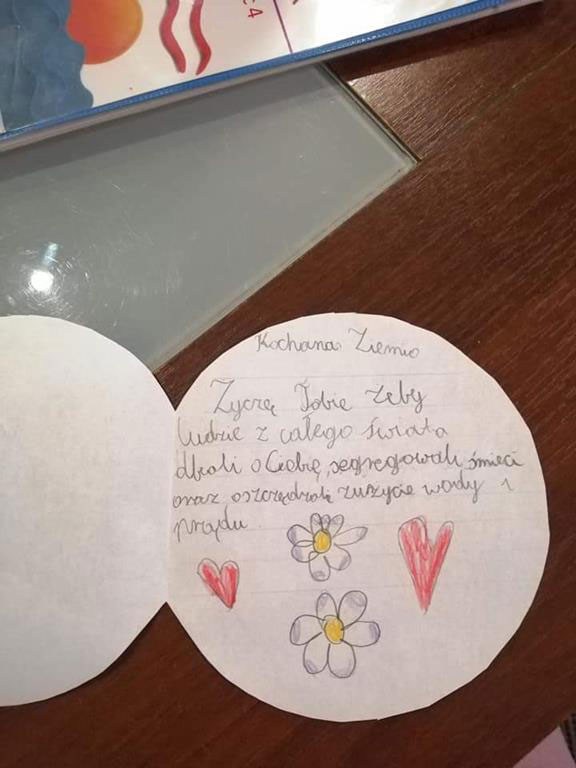 Kochana Ziemio
Życzę Tobie żeby
ludzie z całego świata
dbali o Ciebię, segregowali śmieci
oraz oszczędzali zużycie wody i
prądu.